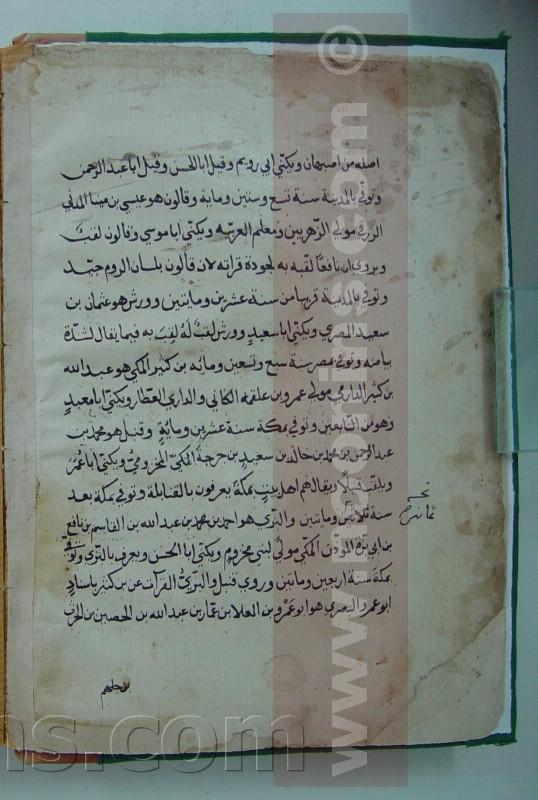 اصله من اصبهان ويكنى ابي رويم وقيل ابا الحسن وقيل ابا عبد الرحمن
وتوفي بالمدينة سنة تسع وستين وماية وقالون هو عيسى بن مينا المدني
الزرقي مولى الزهريين ومعلم العربيه ويكنى ابا موسى وقالون لقب
ويروى ان نافعا لقبه به لجودة قراته لان قالون بلسان الروم جيد
وتوفي بالمدينة قريبا من سنة عشرين ومايتين وورش هو عثمان بن
سعيد المصري ويكنى ابا سعيد وورش لقب له لقب به فيما يقال لشدة
بياضه وتوفي بمصر سنة سبع وتسعين ومايه بن كثير المكي هو عبد الله
بن كثير الداري مولى عمرو بن علقمه الكناني والداري العطار ويكنى ابا معبد
وهو من التابعين وتوفي بمكة سنة عشرين وماية وقنبل هو محمد بن
عبد الرحمن بن محمد بن خالد بن سعيد بن جرجة المكي المخزومي ويكنى ابا عمر
ويلقب قنبلا ويقال هم اهل بيت بمكة يعرفون بالقنابلة وتوفي بمكة بعد
سنة ثلاثين ومايتين والبزي هو احمد بن محمد بن عبد الله بن القاسم بن نافع
بن ابي بزة المؤذن المكي مولى لبني مخزوم ويكنى ابا الحسن ويعرف بالبزي وتوفي
بمكة سنة اربعين وماتين وروى قنبل والبزي القرات عن بن كثير باسناد
ابو عمرو البصري هو ابو عمرو بن العلا بن عمار بن عبد الله بن الحصين بن الحرث
www.noorins.com ©
ns.com